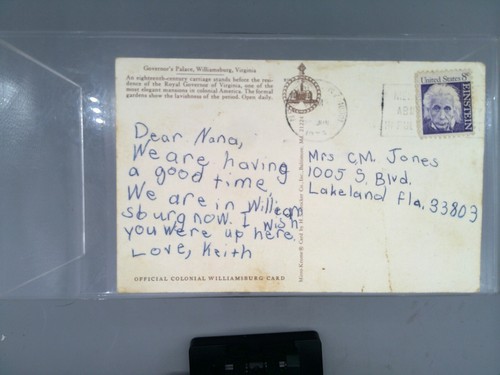 Governor's Palace, Williamsburg, Virginia
An eighteenth-century carriage stands before the resi-
dence of the Royal Governor of Virginia, one of the
most elegant mansions in colonial America. The formal
gardens show the lavishness of the period. Open daily.
Dear Nana,
We are having
a good time.
We are in William
sburg now. I wish
you were up here.
Love, Keith
OFFICIAL COLONIAL WILLIAMSBURG CARD
United States 8c
EINSTEIN
Mrs C.M. Jones
1005 S. Blvd.
Lakeland Fla, 33803